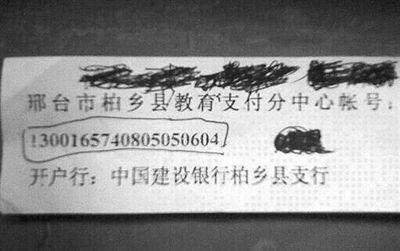 邢台市柏乡县教育支付分中心帐号：
1300165740805050604
开户行：中国建设银行柏乡县支行